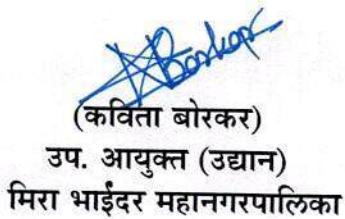 Borkar
(कविता बोरकर)
उप. आयुक्त (उद्यान)
मिरा भाईंदर महानगरपालिका